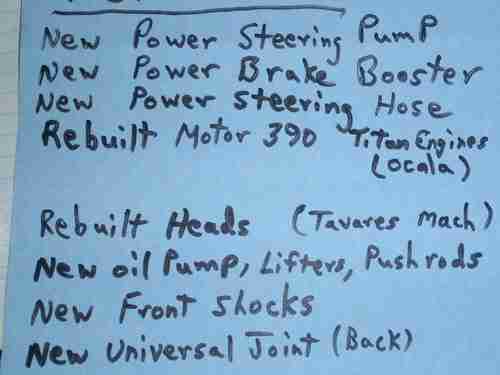 New Power Steering Pump
New Power Brake Booster
New Power Steering Hose
Rebuilt Motor 390 Titan Engines
(Ocala)
Rebuilt Heads (Tavares Mach)
New oil Pump, Lifters, Pushrods
New Front Shocks
New Universal Joint (Back)